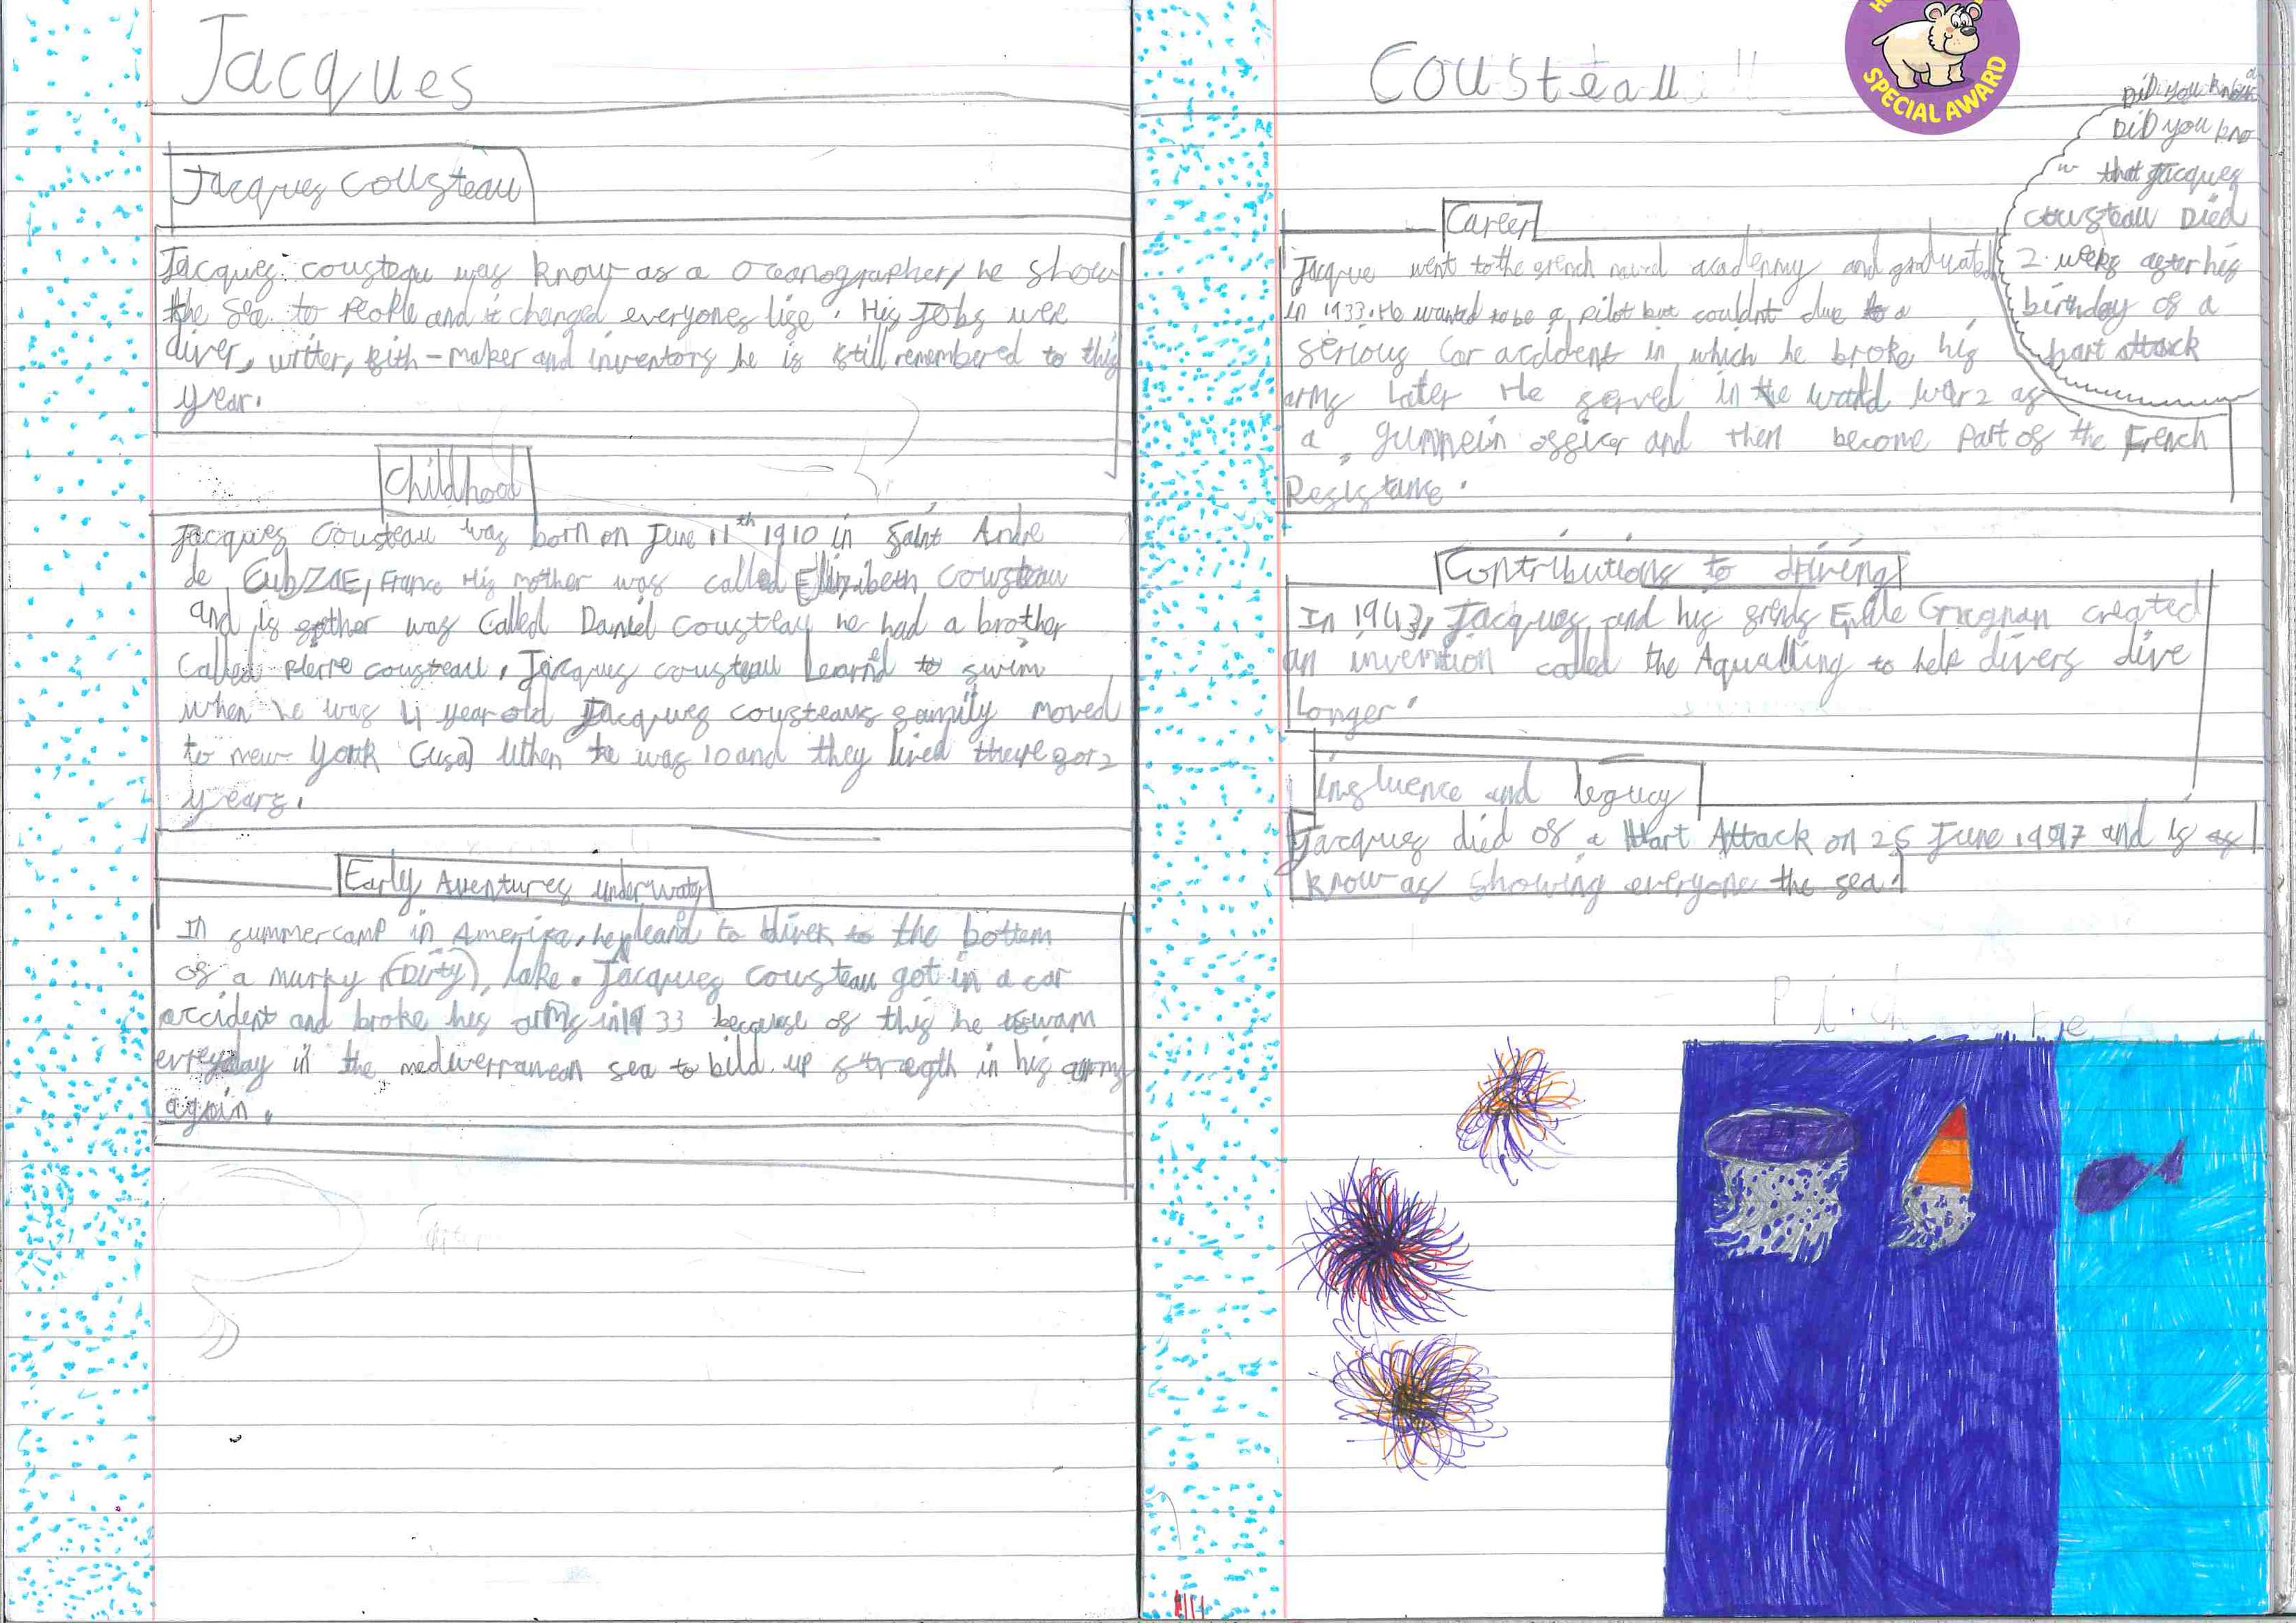 Jacques
Jacques Cousteau
Jacques cousteau was know as a oceanographer, he show
the sea to People and it changed everyones life. His Jobs were
diver, writer, fith-maker and inventors he is still remembered to this
year.
Childhood
Jacques Cousteau was born on June 11th 1910 in Saint Andre
de CubZAE, France His mother was called Elizabeth Cousteau
and is father was called Daniel Cousteau he had a brother
Called Pierre cousteau. Jacques cousteau Learnd to swim
when he was 4 year old Jacques cousteaus family moved
to new York (usa) When he was 10 and they lived there for 2
years.
Early Aventures underwater
In summercamp in Amerira, he leand to diver to the bottem
of a murky (Dirty), lake. Jacques Cousteau got in a car
accident and broke his arms in 1933 because of this he swam
everyday in the mediverranean sea to bild up strength in his arms
again.
Cousteau!!
HO
SPECIAL AWARD
DiD you know
DiD you kno
w that Jacques
cousteau Died
2 weeks after his
birthday of a
hart attack
Career
Jacque went to the french naval acadenmy and graduated
in 1933. He wanted to be a pilot but couldnt due to a
serious Car acident in which he broke his
arms Later He served in the world war 2 as
a gunnein officer and then become Part of the French
Resistance.
Contributions to driving
In 1943, Jacques and his frends Emile Gragnan created
an invention called the Aqualung to help divers dive
Longer.
influence and legacy
Jacques died of a Hart Attack on 25 June 1997 and is as
know as showing everyone the sea.